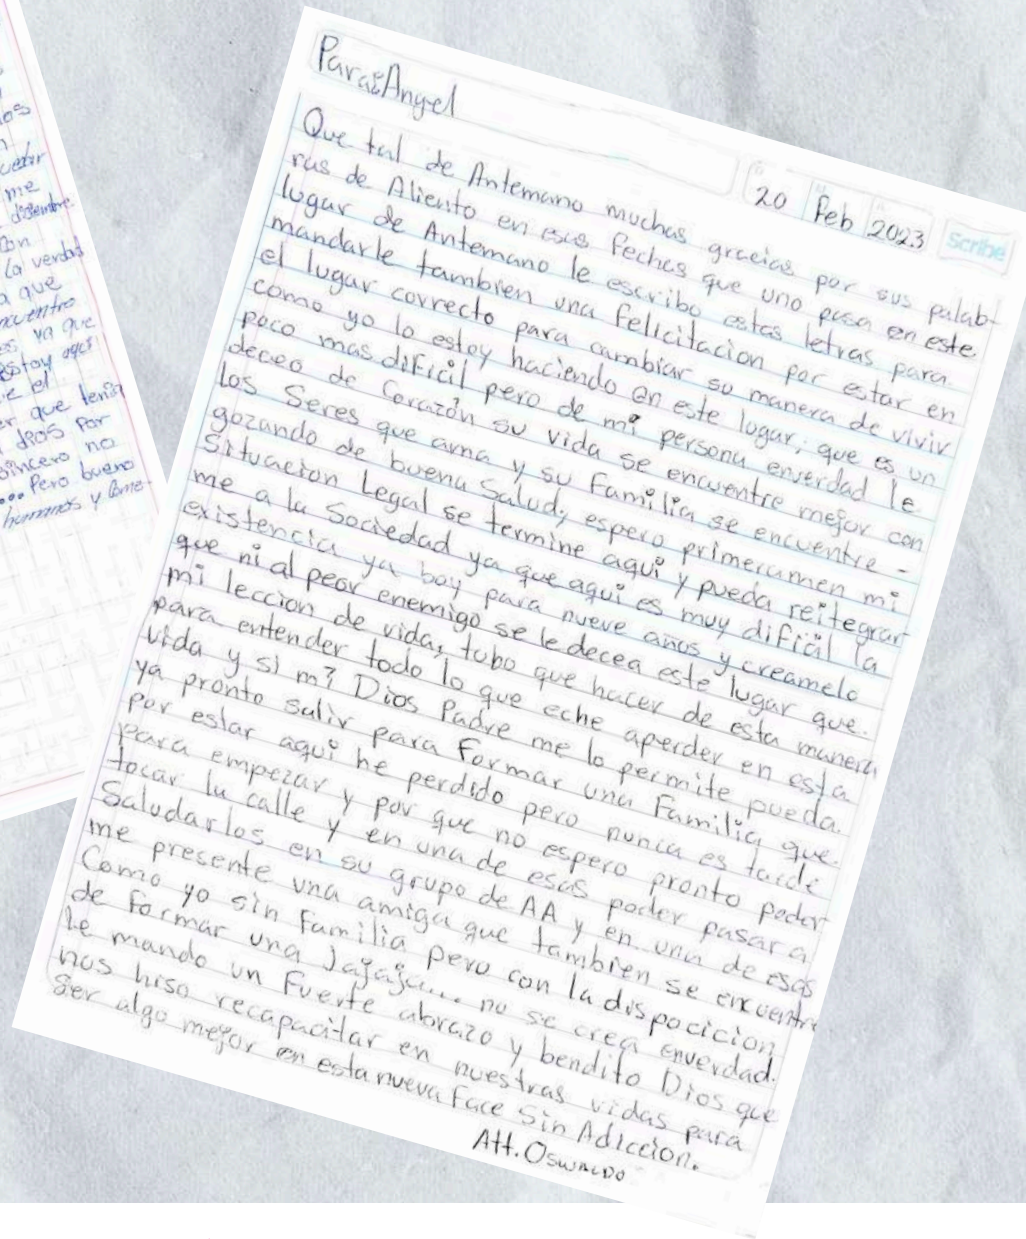 as
n
me
con
La verdad
a que
ncuentro
es ya que
Estoy aqui
e el
er que tenia
dios por
sincero no
... Pero bueno
humanos y come-
Para: Angel
20 Feb 2023 Scribe
Que tal de Antemano muchas graeias por sus palab-
ras de Aliento en esas fechas que uno pasa en este
lugar de Antemano le escribo estas letras para
mandarle tambien una felicitacion por estar en
el lugar correcto para cambiar su manera de vivir
como yo lo estoy haciendo en este lugar, que es un
poco mas dificil pero de mi persona enverdad le
deceo de Corazón su vida se encuentre mejor con
los Seres que ama y su Familia se encuentre-
gozando de buena Salud, espero primeramen mi
Situacion Legal se termine aqui y pueda reitegrar
me a la Sociedad ya que aqui es muy dificil la
existencia ya boy para nueve años y creamelo
que ni al peor enemigo se le decea este lugar que.
mi leccion de vida, tubo que hacer de esta manera
para entender todo lo que eche aperder en esta
vida y si mi Dios Padre me lo permite pueda.
ya pronto salir para Formar una Familia que.
por estar aqui he perdido pero nunca es tarde
para empezar y por que no espero pronto poder
tocar la calle y en una de esas poder pasar a
Saludarlos en su grupo de AA y en una de esas
me presente una amiga que tambien se encuentre
Como yo sin Familia pero con la dispocicion
de Formar una Jajaja... no se crea enverdad.
Le mando un Fuerte abrazo y bendito Dios que
nos hiso recapacitar en nuestras vidas para
Ser algo mejor en esta nueva Face Sin Adiccion.
Att. Oswaldo